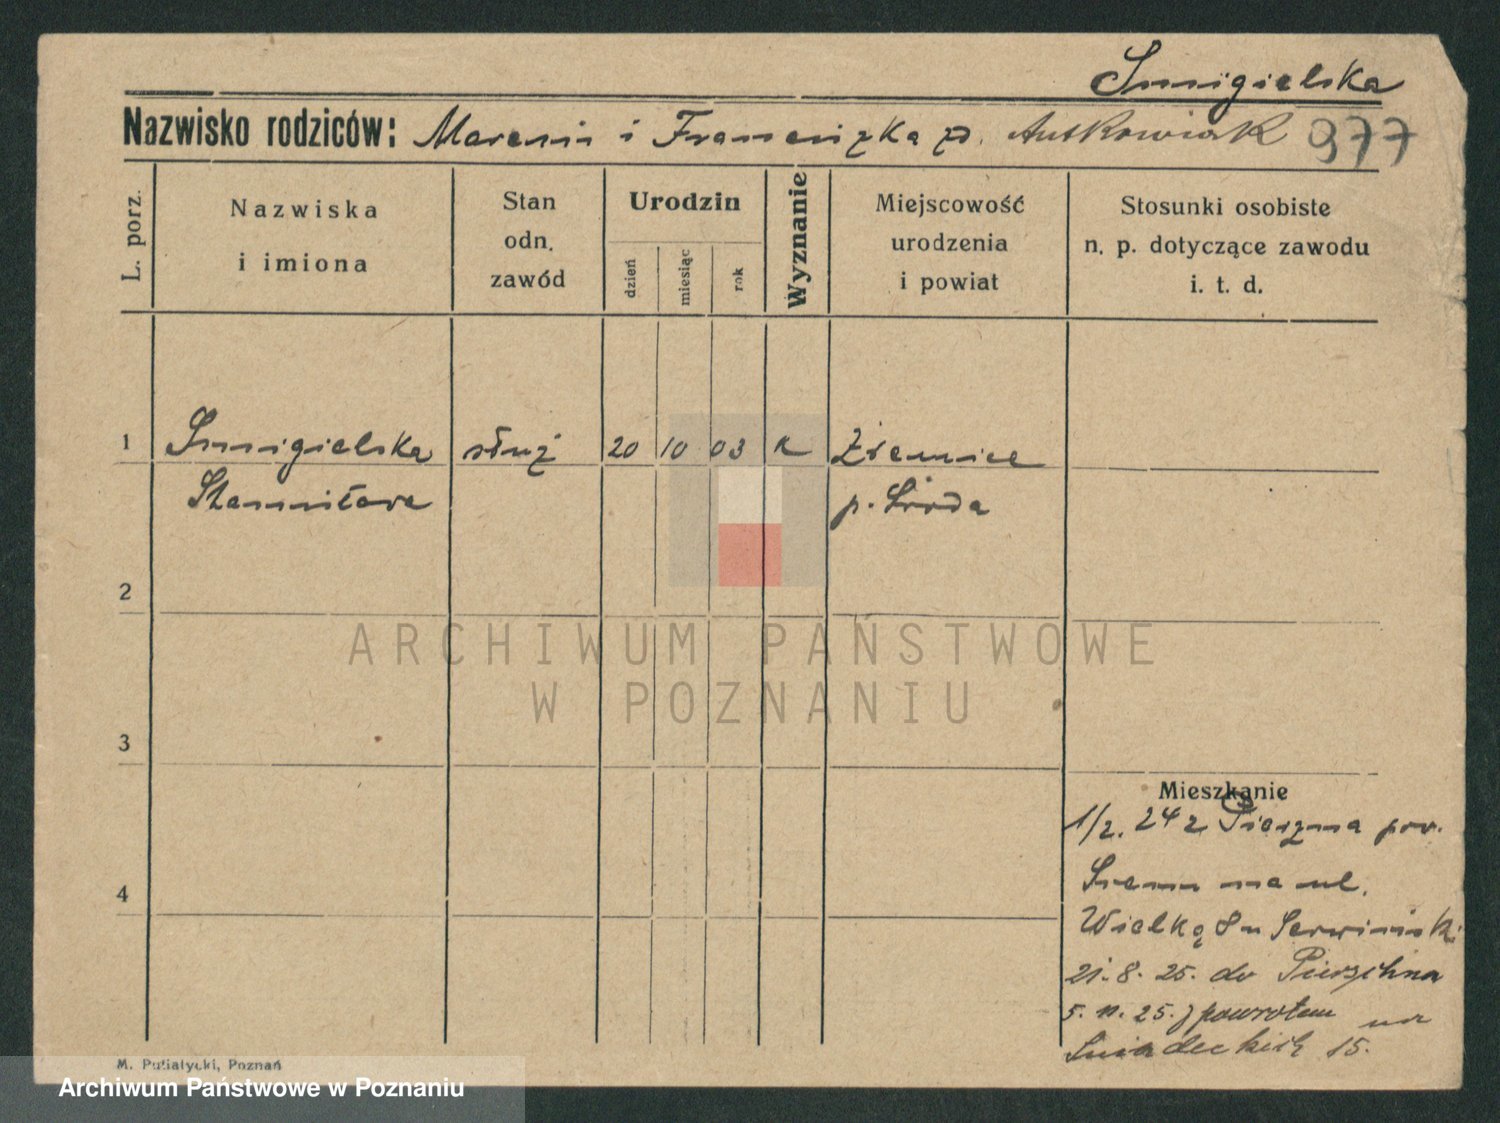 Smigielska
Nazwisko rodziców: Marcin i Franciszka zd. Antkowiak 977
L. porz.
Nazwiska
i imiona
Stan
odn.
zawód
Urodzin
dzień
miesiąc
rok
Wyznanie
Miejscowość
urodzenia
i powiat
Stosunki osobiste
n. p. dotyczące zawodu
i. t. d.
1 Smigielska służ 20 10 03 K
Stanisława p. Środa
2
3
4
ARCHIWUM PAŃSTWOWE
W POZNANIU
Mieszkanie
1/2. 24 z pow.
Śrem na ul.
Wielką 8
21. 8. 25. do Pierzchna
5. 11. 25. z powrotem na
Śniadeckich 15.
M. Putiatycki, Poznań
Archiwum Państwowe w Poznaniu